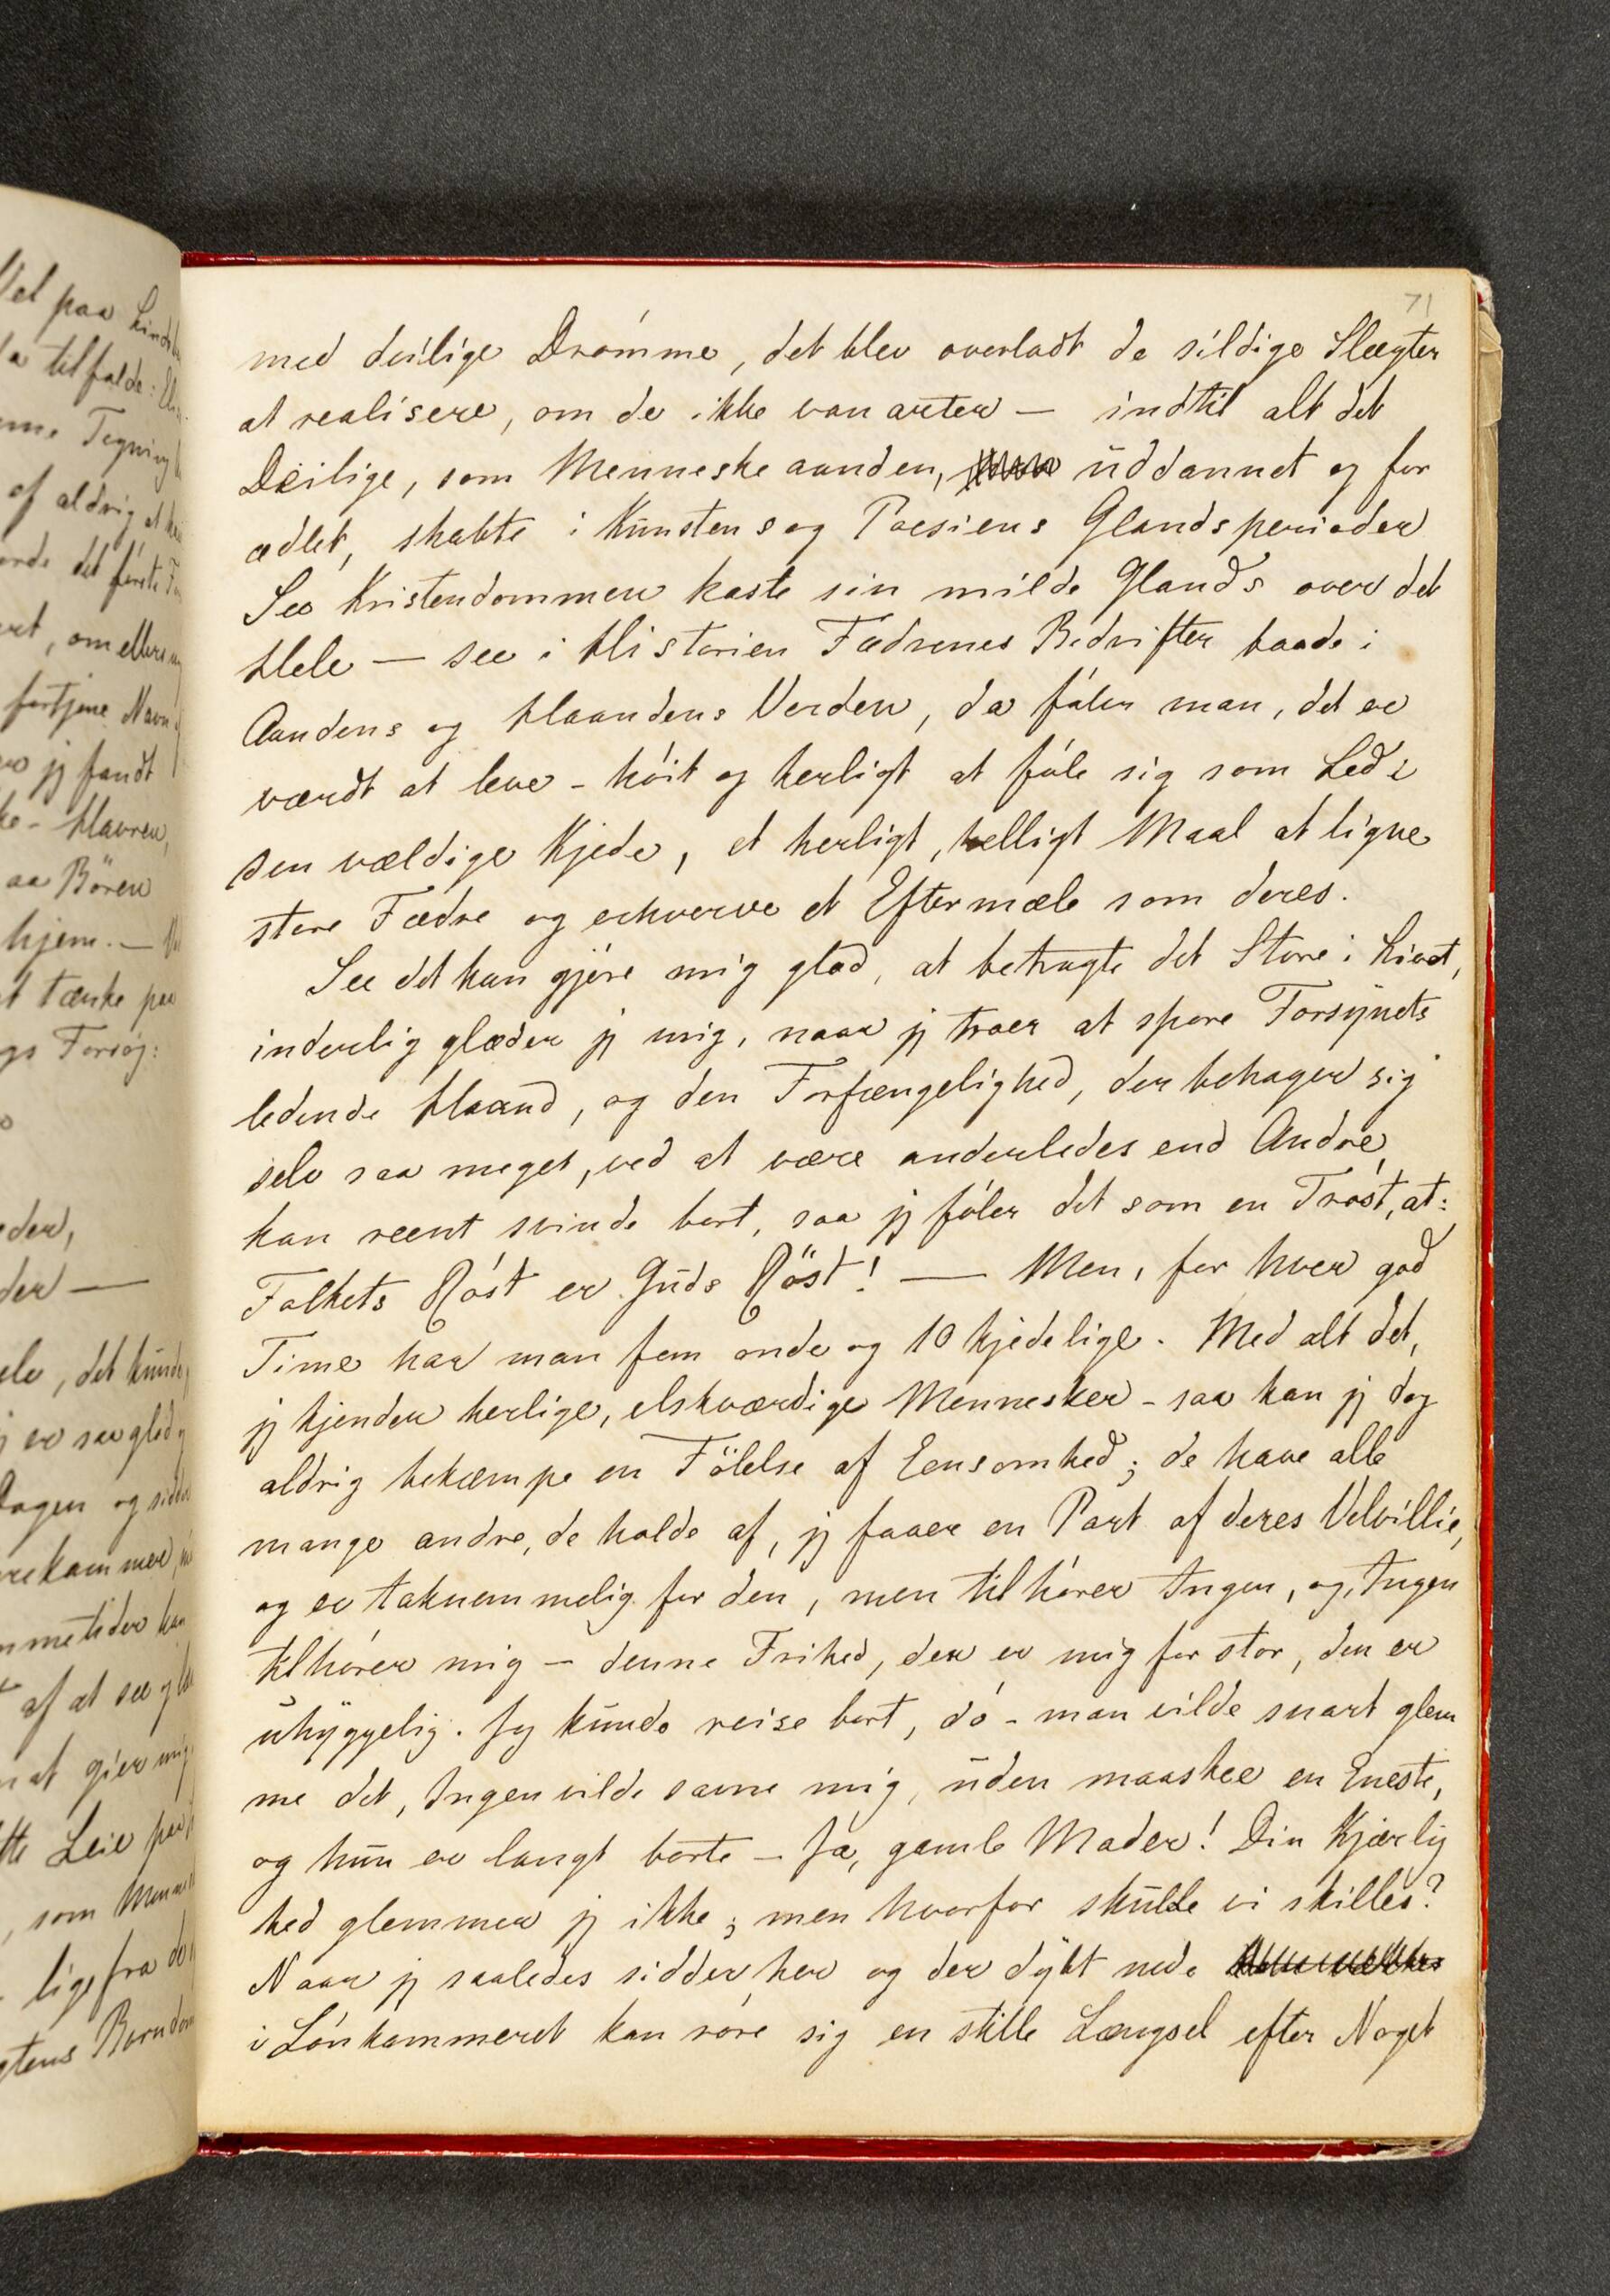 71
med deilige Drømme, det blev overladt de sildige Slægter
at realisere, om de ikke vanarter — indtil alt det
Deilige, som Menneskeaanden, uddannet og for
ædlet, skabte i Kunstens og Poesiens Glandsperioder
See Kristendommen kaste sin milde Glands over det
Hele — see i Historien Fædrenes Bedrifter baade i
Aandens og Haandens Verden, da føler man, det er
værdt at leve - høit og herligt at føle sig som Led i
den vældige Kjede, et herligt, helligt Maal at ligne
store Fædre og erhverve et Eftermæle som deres.
See det kan gjøre mig glad, at betragte det Store i Livet,
inderlig glæder jg mig, naar jg troer at spore Forsynets
ledende Haand, og den Forfængelighed, der behager sig
selv saa meget, ved at være anderledes end Andre,
kan reent svinde bort, saa jg føler det som en Trøst, at:
Folkets Røst er Guds Røst! — Men, for hver god
Time har man fem onde og 10 kjedelige. Med alt det,
jg kjender herlige, elskværdige Mennesker - saa kan jg dog
aldrig bekæmpe en Følelse af Eensomhed; de have alle
mange andre, de holde af, jg faaer en Part af deres Velvillie,
og er taknemmelig for den, men tilhører Ingen, og Ingen
tilhører mig — denne Frihed, den er mig for stor, den er
uhyggelig. Jeg kunde reise bort, dø - man vilde snart glem
me det, Ingen vilde savne mig, uden maaskee en Eneste,
og hun er langt borte — Ja, gamle Moder! Din Kjærlig
hed glemmer jg ikke; men hvorfor skulde vi skilles?
Naar jg saaledes sidder her og der dybt nede
i Lønkammeret kan røre sig en stille Længsel efter Noget
Vel paa
Tegning
af aldrig at
det første
om ellers
fortjene Navn
jg fandt
Havren,
aa Børen
hjem. —
at tænke paa
gs Forsøg:
eder,
der —
elv, det kunde
er saa glad
Dagen og
af at see
at giør mig
Leie paa
, som
lige fra
gtens Barndom